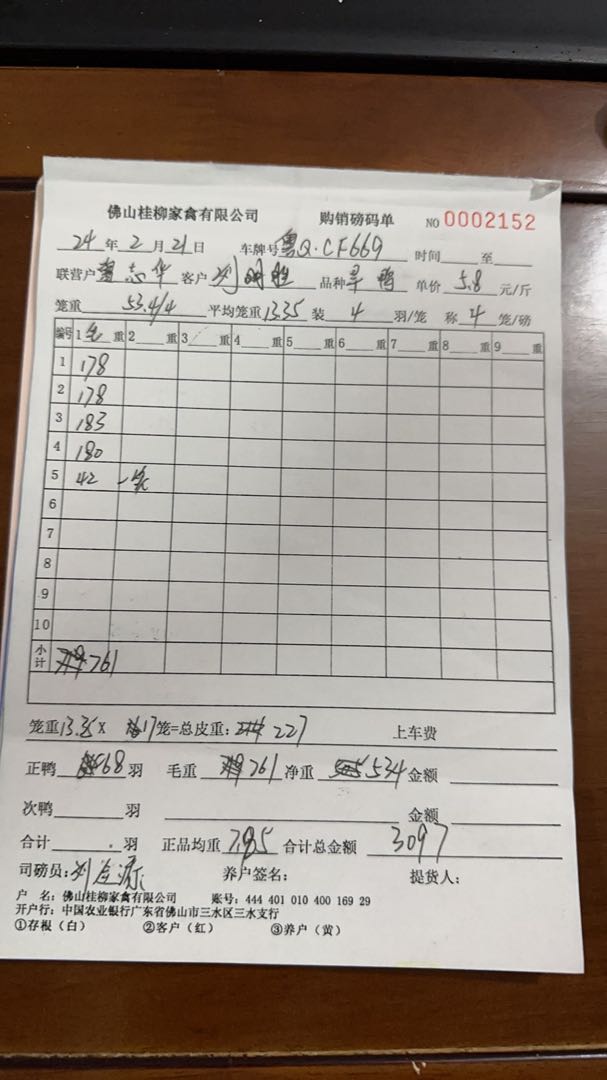 佛山桂柳家禽有限公司 购销磅码单 NO 0002152
24年2月21日 车牌号粤Q·CF669 时间___至___
联营户 志华 客户 刘明胜 品种 旱鸭 单价 5.8 元/斤
笼重 53.4/4 平均笼重13.35 装 4 羽/笼 称 4 笼/磅
编号 1毛重 2___重 3___重 4___重 5___重 6___重 7___重 8___重 9___重
1 178
2 178
3 183
4 180
5 42 一笼
6
7
8
9
10
小计 761
笼重13.35X 17笼=总皮重: 227 上车费
正鸭 68羽 毛重 761 净重 534 金额
次鸭___羽 金额
合计___羽 正品均重 7.85 合计总金额 3097
司磅员: 刘 源 养户签名: 提货人:
户 名: 佛山桂柳家禽有限公司 账号: 444 401 010 400 169 29
开户行: 中国农业银行广东省佛山市三水区三水支行
①存根(白) ②客户(红) ③养户(黄)